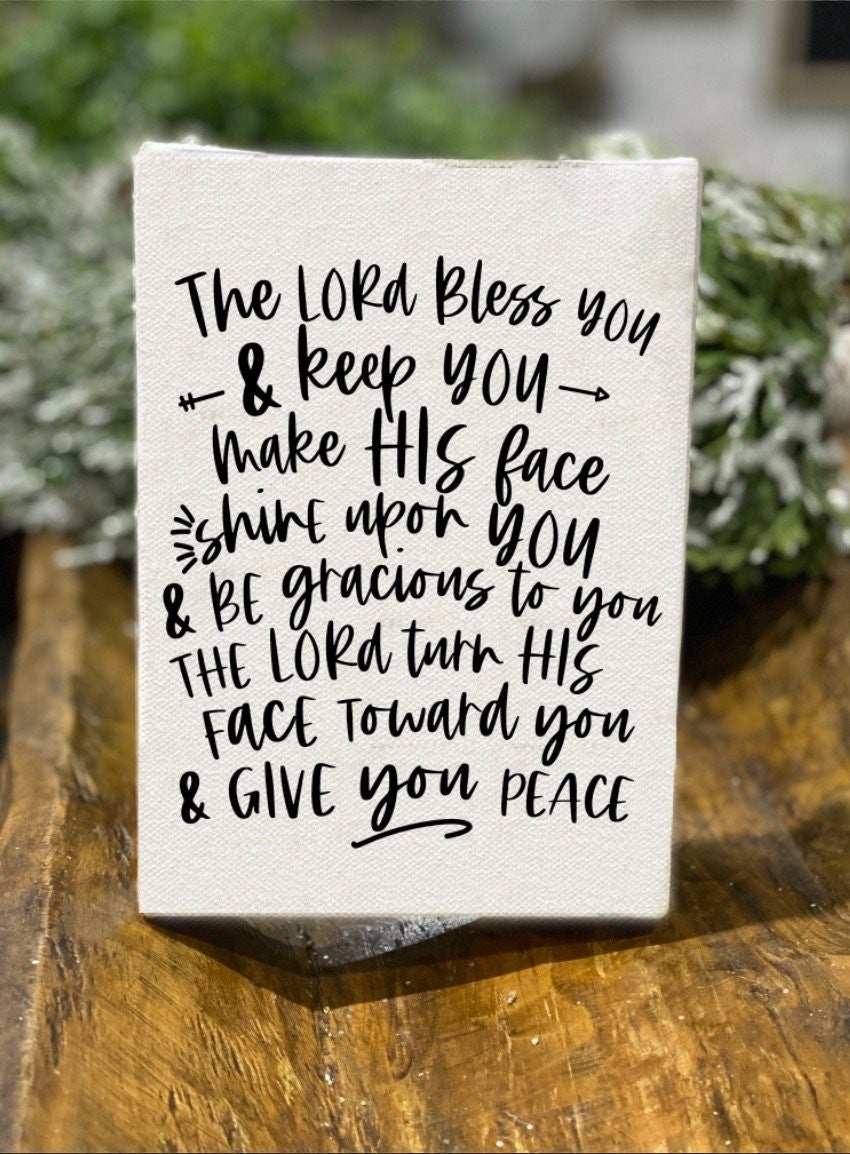 The LORd Bless you
& keep you
make HIS face
shinE upon YOU
& BE gracious to you
THE LORd turn HIS
FACE Toward you
& GIVE you PEACE